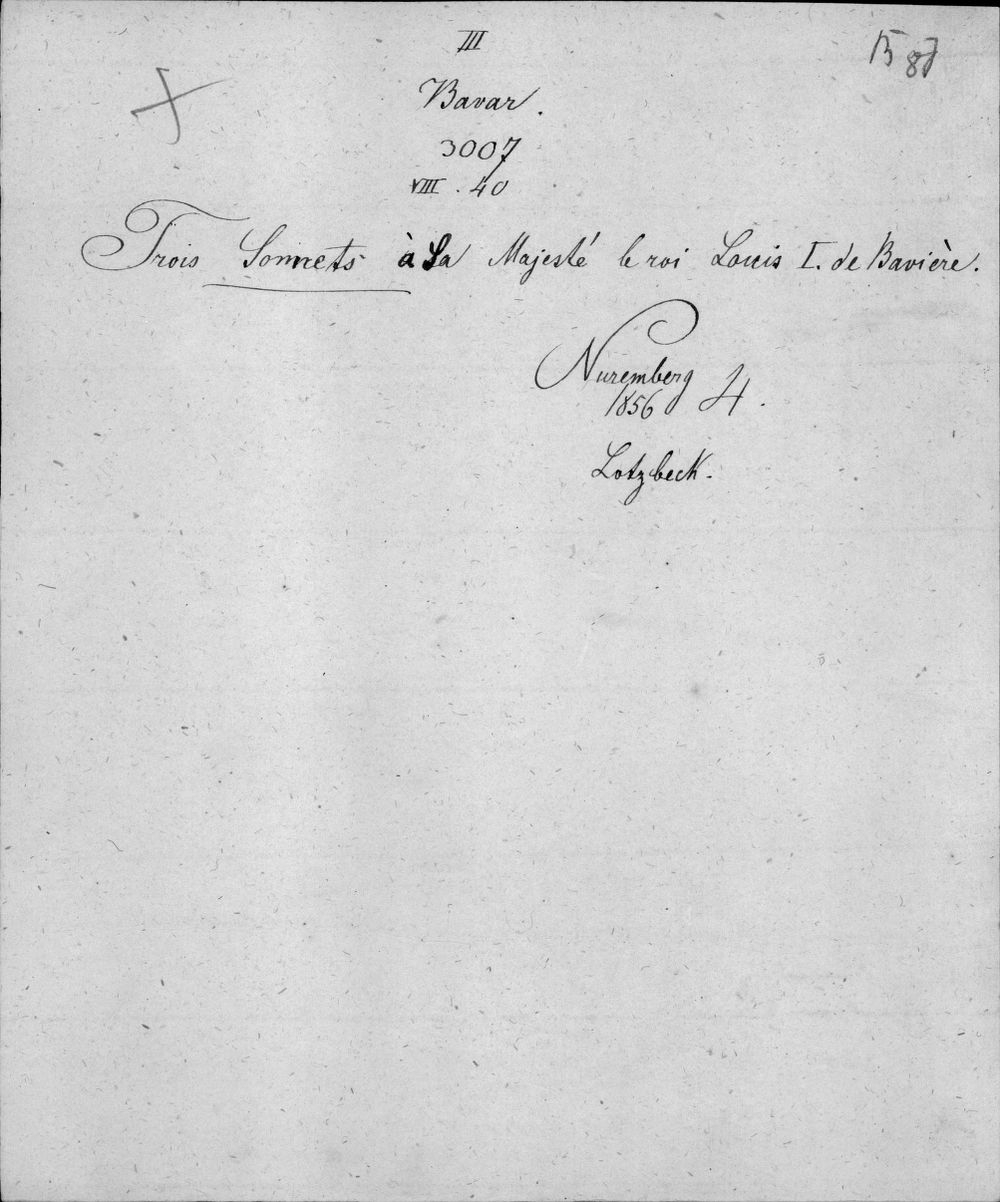 III
Bavar.
3007
VIII. 40
Trois Sonnets à Sa Majesté le roi Louis I. de Bavière.
Nuremberg
1856 4.
Lotzbeck.